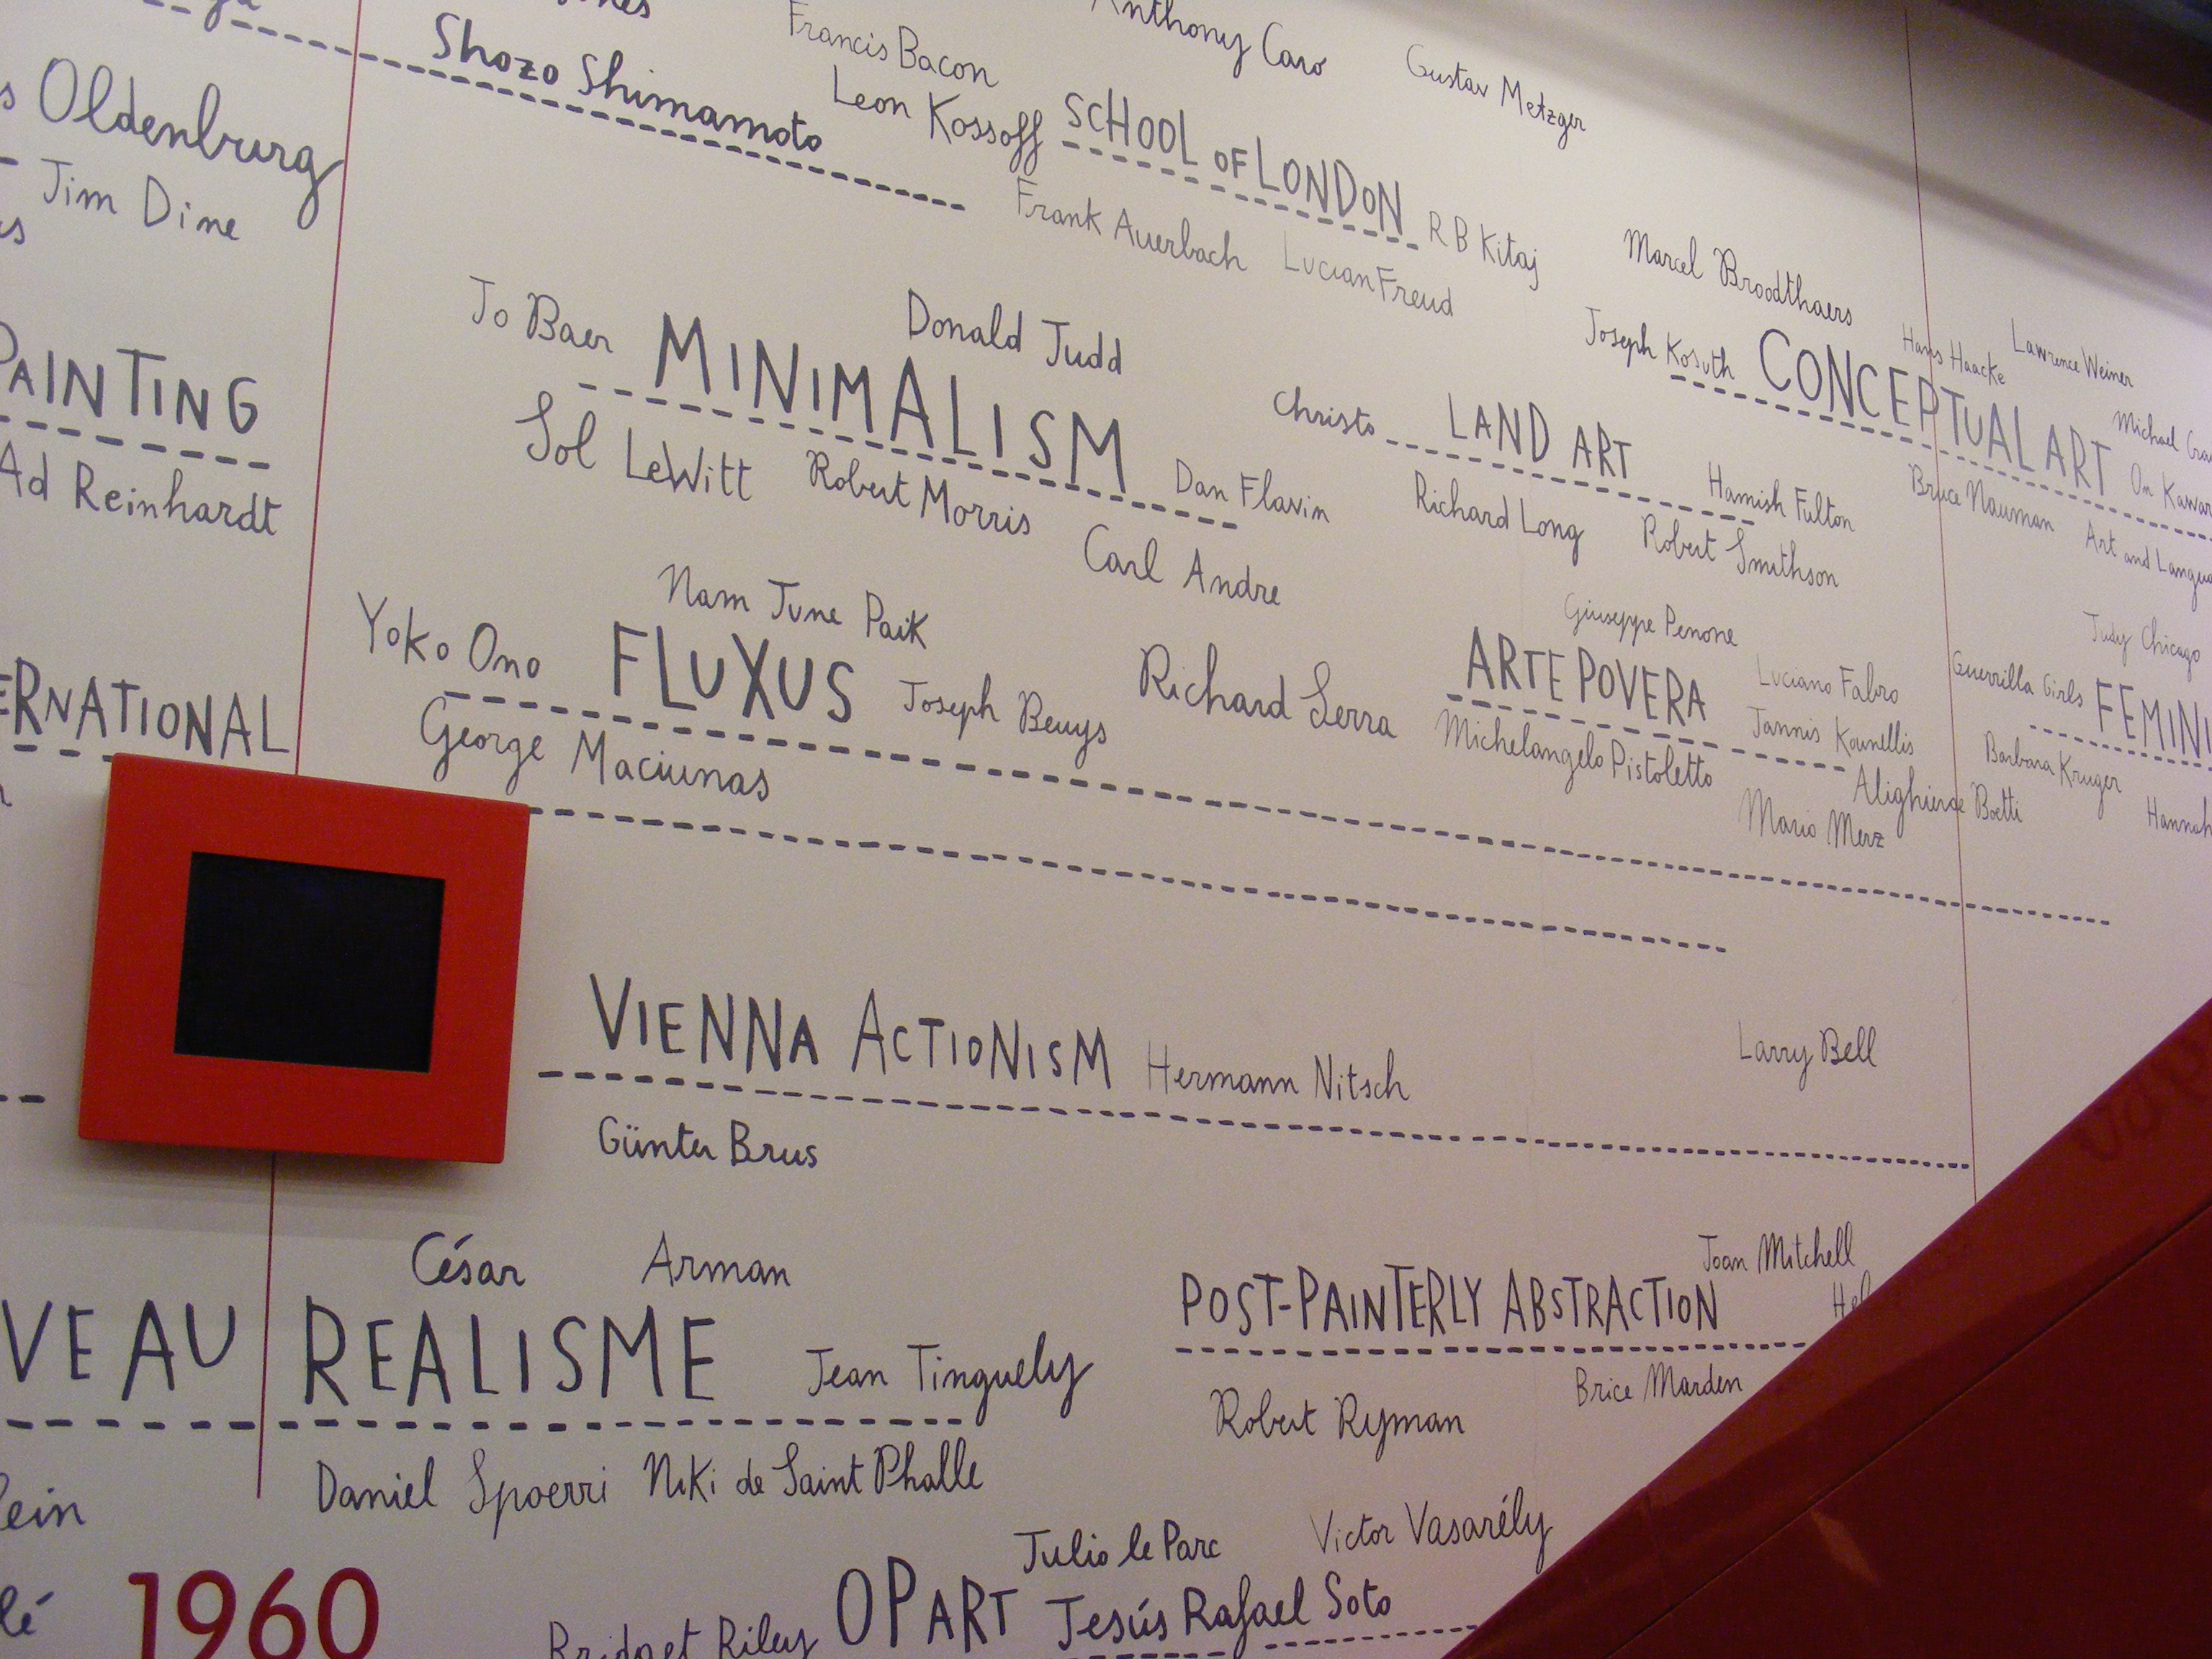 Shozo Shimamoto
Francis Bacon
Anthony Caro
Gustav Metzger
Leon Kossoff SCHOOL OF LONDON R B Kitaj
Frank Auerbach Lucian Freud
Oldenburg
Jim Dine
Marcel Broodthaers
Joseph Kosuth CONCEPTUAL ART On
Hans Haacke
Lawrence Weiner
Michael
Bruce Nauman Art and
Jo Baer MINIMALISM Dan Flavin
Donald Judd
Sol LeWitt Robert Morris
Carl Andre
Christo LAND ART Hamish Fulton
Richard Long Robert Smithson
PAINTING
Ad Reinhardt
Nam June Paik
Yoko Ono FLUXUS Joseph Beuys
George Maciunas
Richard Serra
Giuseppe Penone
ARTE POVERA Luciano Fabro
Michelangelo Pistoletto Jannis Kounellis
Alighierae Boetti
Mario Merz
Judy Chicago
Guerrilla Girls FEMINI
Barbara Kruger Hannah
ERNATIONAL
VIENNA ACTIONISM Hermann Nitsch
Günter Brus
Larry Bell
César Arman
VEAU REALISME Jean Tinguely
Daniel Spoerri Niki de Saint Phalle
Joan Mitchell
POST-PAINTERLY ABSTRACTION
Robert Ryman Brice Marden
lein
lé
1960
Julio le Parc Victor Vasarély
Bridget Riley OP ART Jesús Rafael Soto